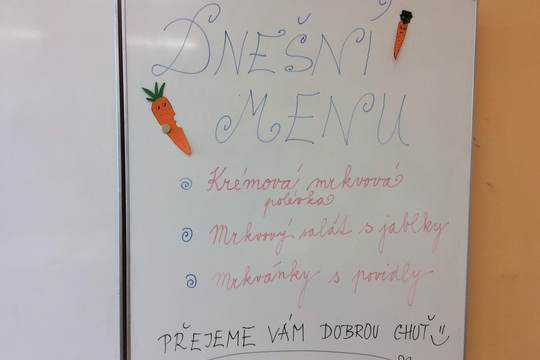 DNEŠNÍ
MENU
Krémová mrkvová
polévka
Mrkvový salát s jablky
Mrkvánky s povidly
PŘEJEME VÁM DOBROU CHUŤ